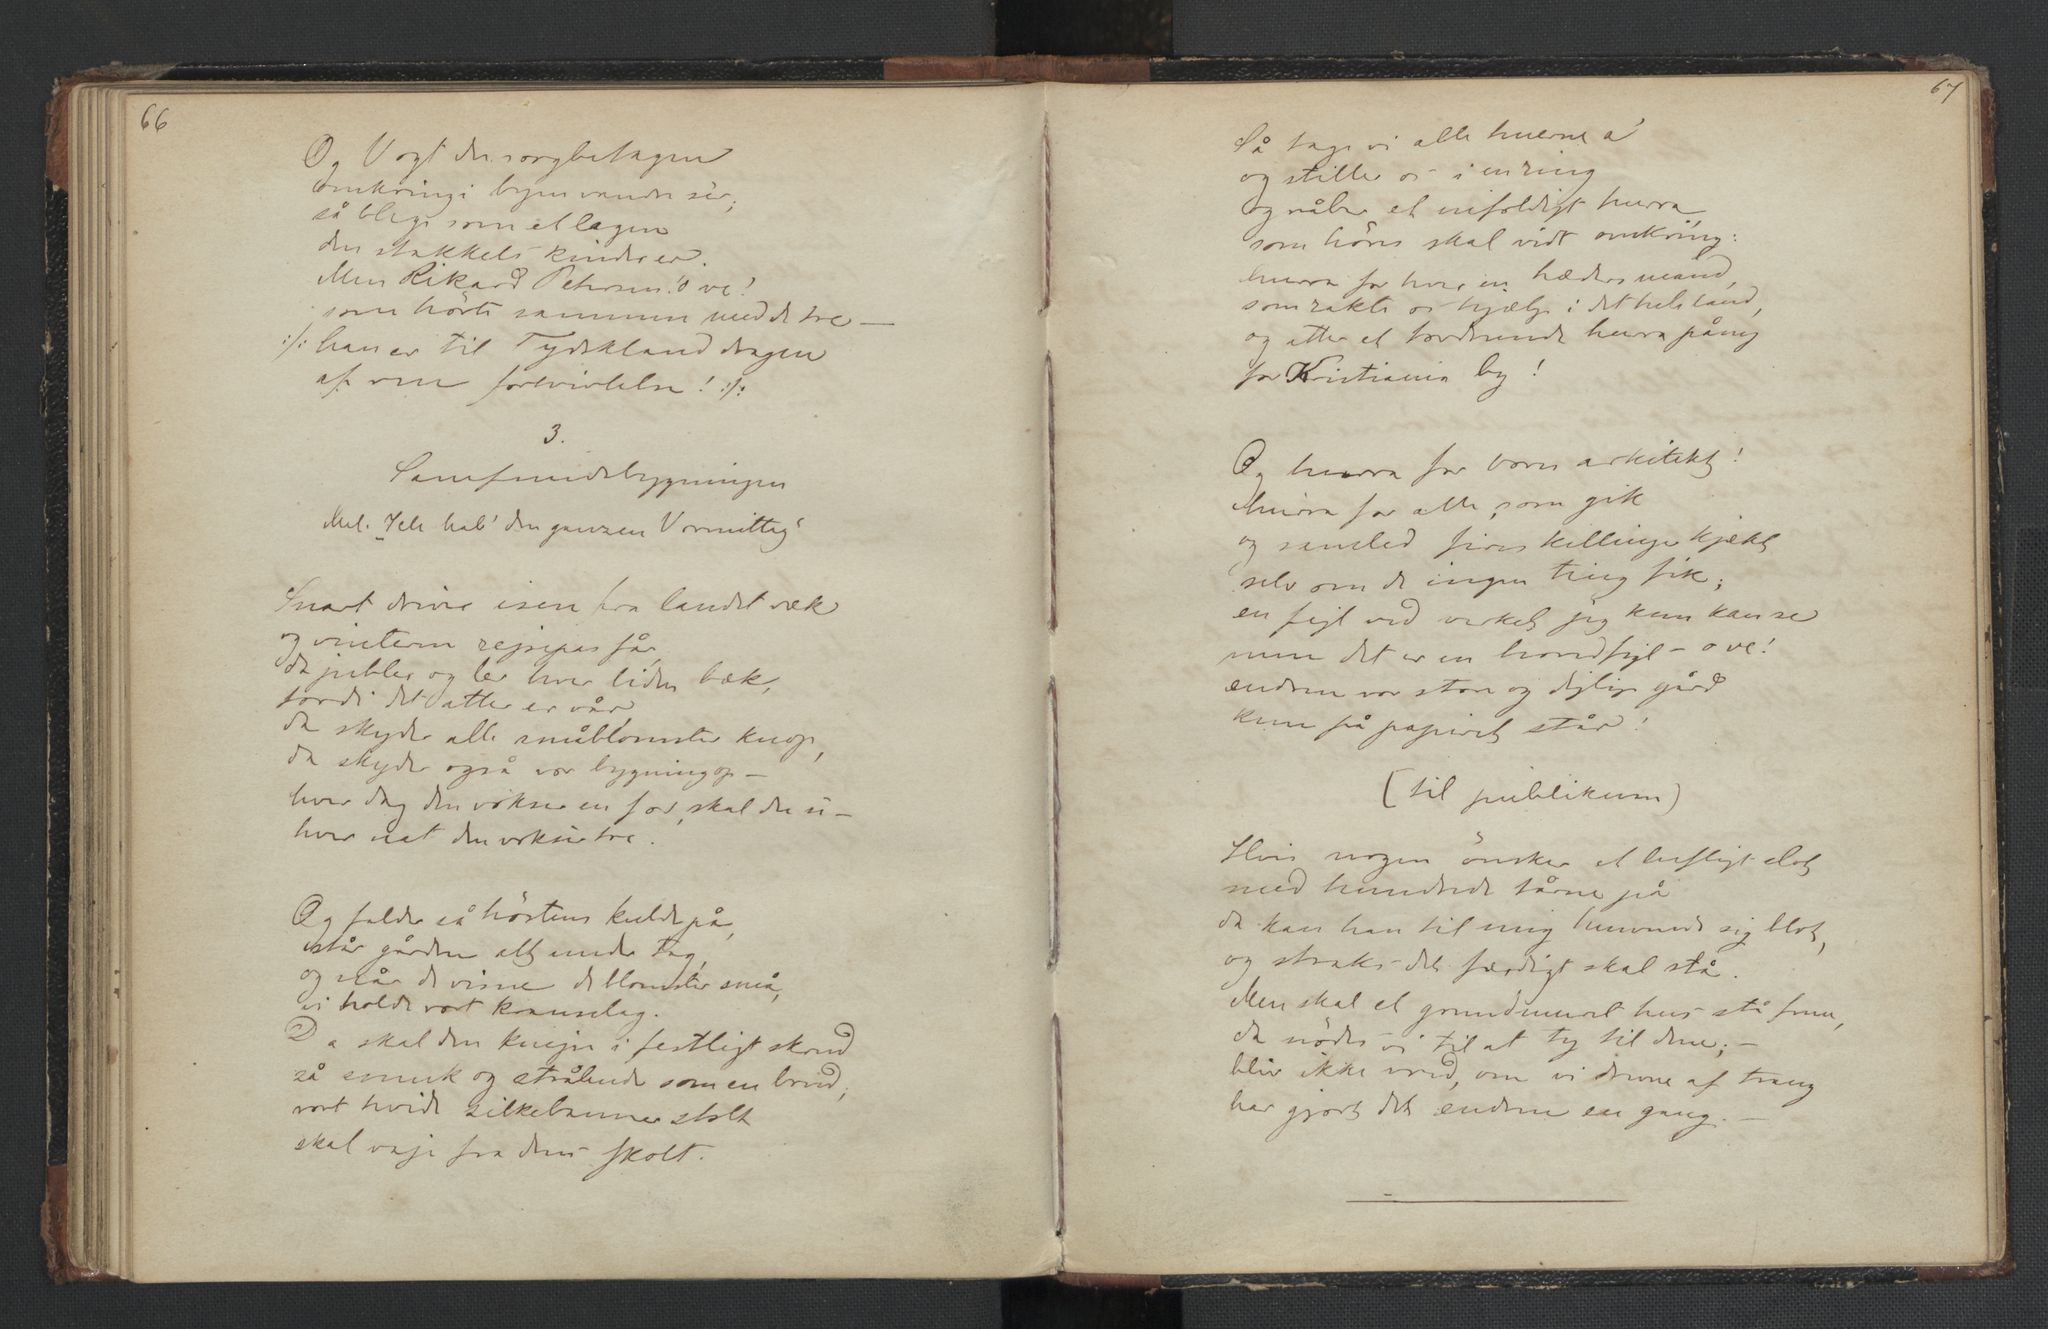 66
Og Vogt den sorgbetagen
omkring i byen vandre sér;
så blege som et lagen
den stakkels kinder er.
Men Rikard Petersen! o ve!
som hörte sammen med de tre —
:/: han er til Tydskland dragen
af ren fortvivlelse! :/:
3.
Samfundsbygningen
Mel. Ich hab' den ganzen Vormittag
Snart drive isen fra landet væk
og vinteren rejsepas får,
da jubler og ler hver liden bæk,
fordi det atter er vår
da skyder alle småblomster knop,
da skyder også vor bygning op —
hver dag den vokser en fod, skal du si —
hver nat den vokser tre.
Og falder så höstens kulde på,
står gården alt under tag,
og når de visne de blomster små,
vi holde vort kranselag.
Da skal den knejse i festligt skrud
så smuk og strålende som en brud;
vort hvide silkebanner stolt
skal vaje fra dens skolt.
67
Så tage vi alle huerne a'
og stiller os i en ring
og råber et nifoldigt hurra,
som höres skal vidt omkring:
hurra for hver en hædersmand,
som rakte os hjælp i det hele land,
og atter et tordnende hurra påny
for Kristiania by!
Og hurra for vores arkitekt!
Hurra for alle, som gik
og samled fireskillinge kjækt
selv om de ingen ting fik;
en fejl ved verket jeg kun kan se
men det er en hovedfejl — o ve!
endnu vor store og dejlige gård
kun på papiret står!
(til publikum)
Hvis nogen önsker et luftigt slot
med hundrede tårne på
da kan han til mig henvende sig blot,
og straks det færdigt skal stå.
Men skal et grundmuret hus stå frem,
da nödes vi til at ty til dem; —
bliv ikke vred, om vi drevne af trang
har gjort det endnu en gang. —